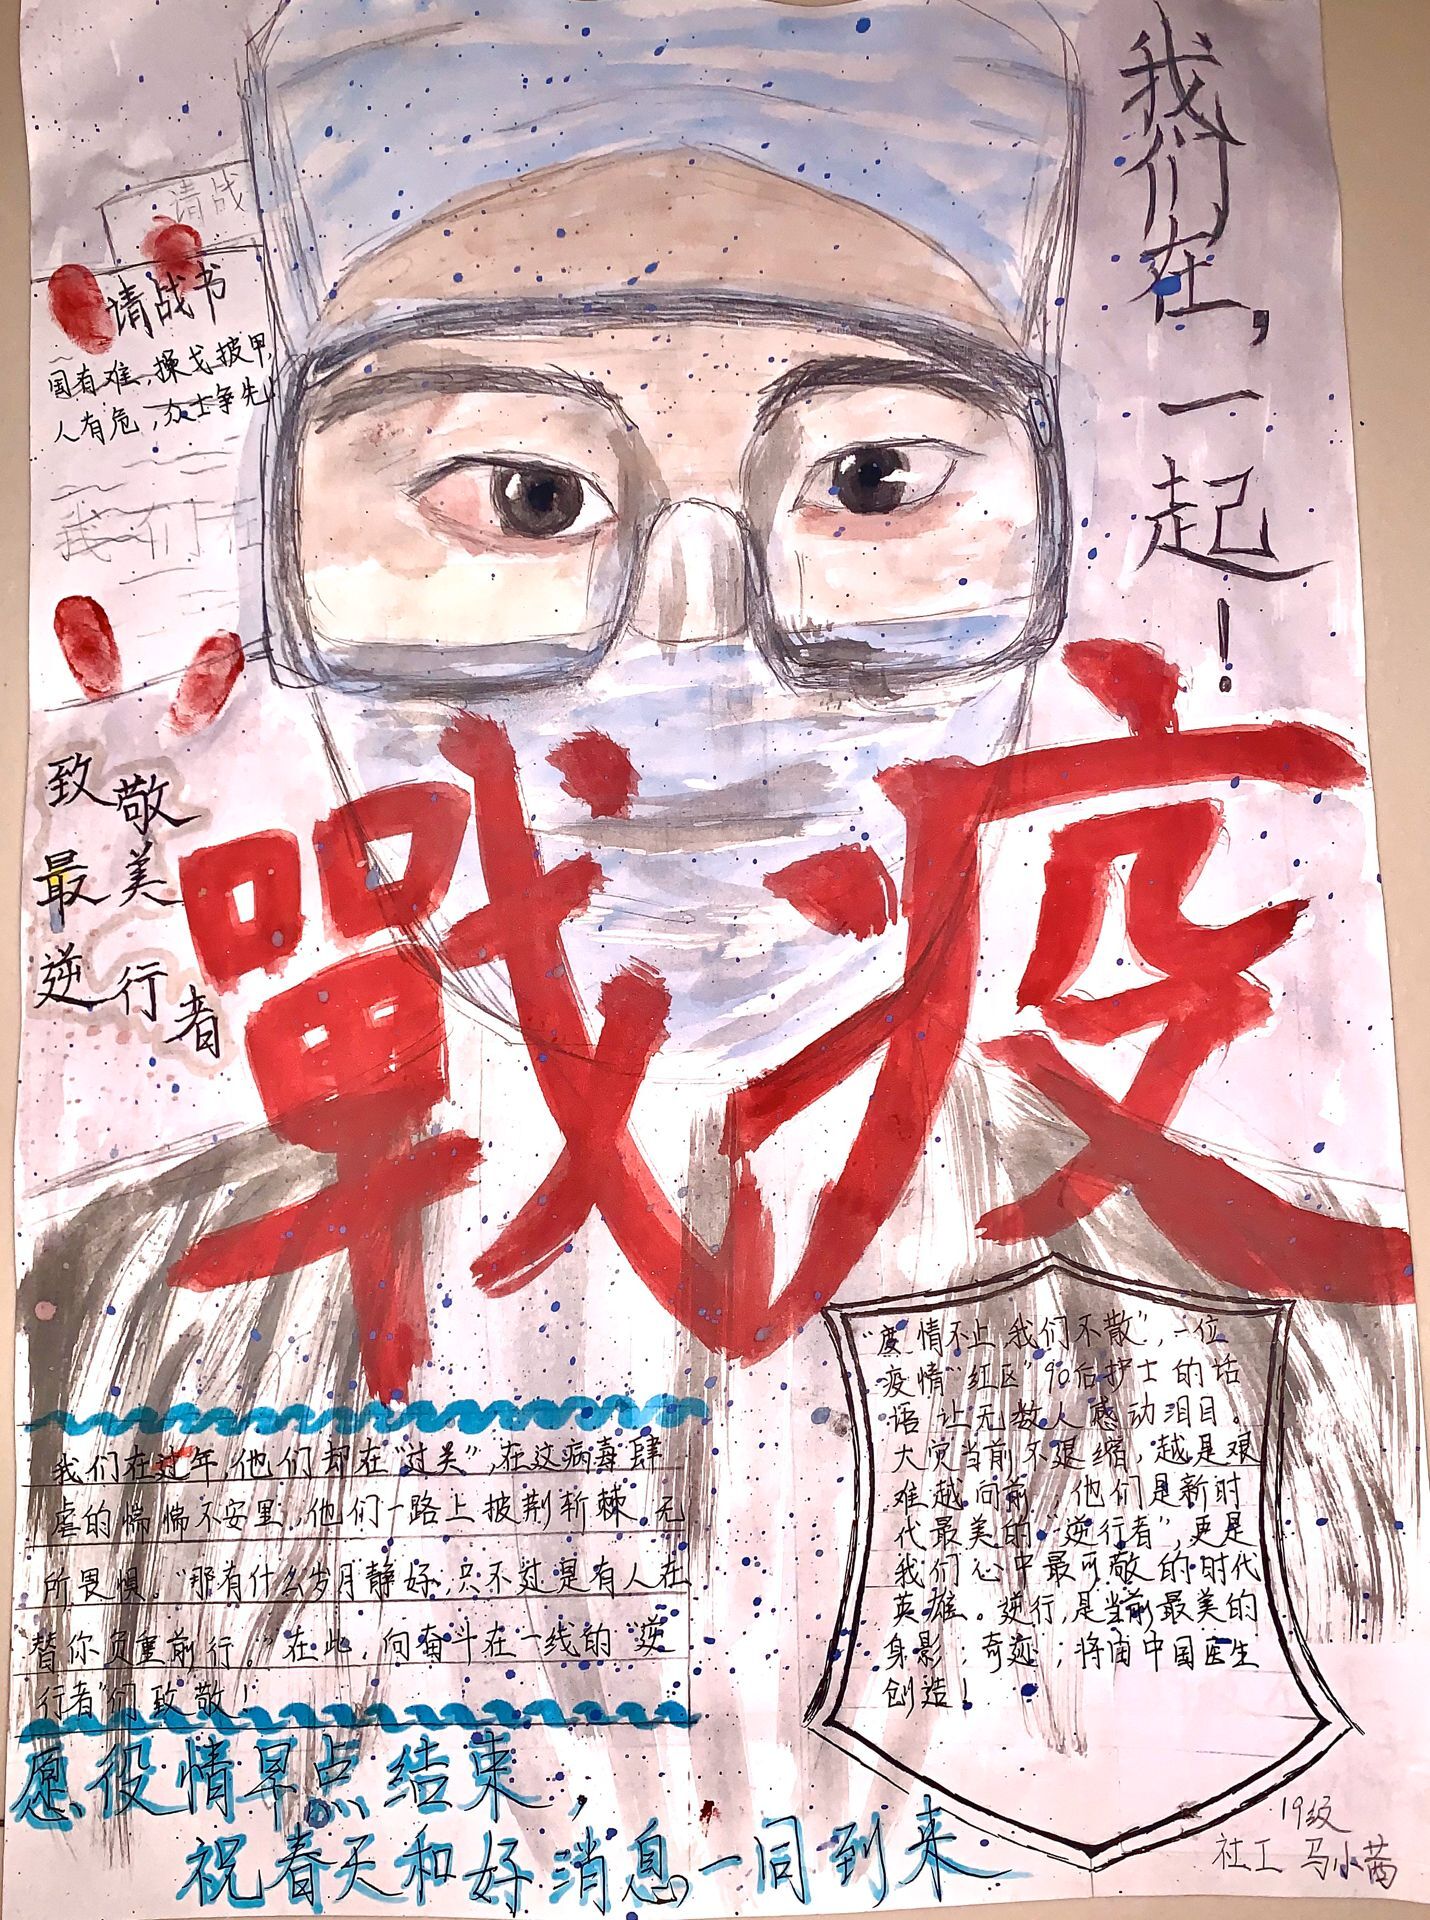 我们在,一起!
请战
请战书
国有难,操戈披甲,
人有危,众士争先!
我们
致敬
最美
逆行者
戰疫
"疫情不止,我们不散",一位
疫情"红区"90后护士的话
语让无数人感动泪目。
大灾当前不退缩,越是艰
难越向前,他们是新时
代最美的"逆行者",更是
我们心中最可敬的时代
英雄。逆行,是当前最美的
身影;奇迹;将由中国医生
创造!
我们在过年,他们却在"过关",在这病毒肆
虐的惴惴不安里,他们一路上披荆斩棘,无
所畏惧。"那有什么岁月静好,只不过是有人在
替你负重前行。"在此,向奋斗在一线的"逆
行者"们致敬!
愿役情早点结束,
祝春天和好消息一同到来
19级
社工 马小茜